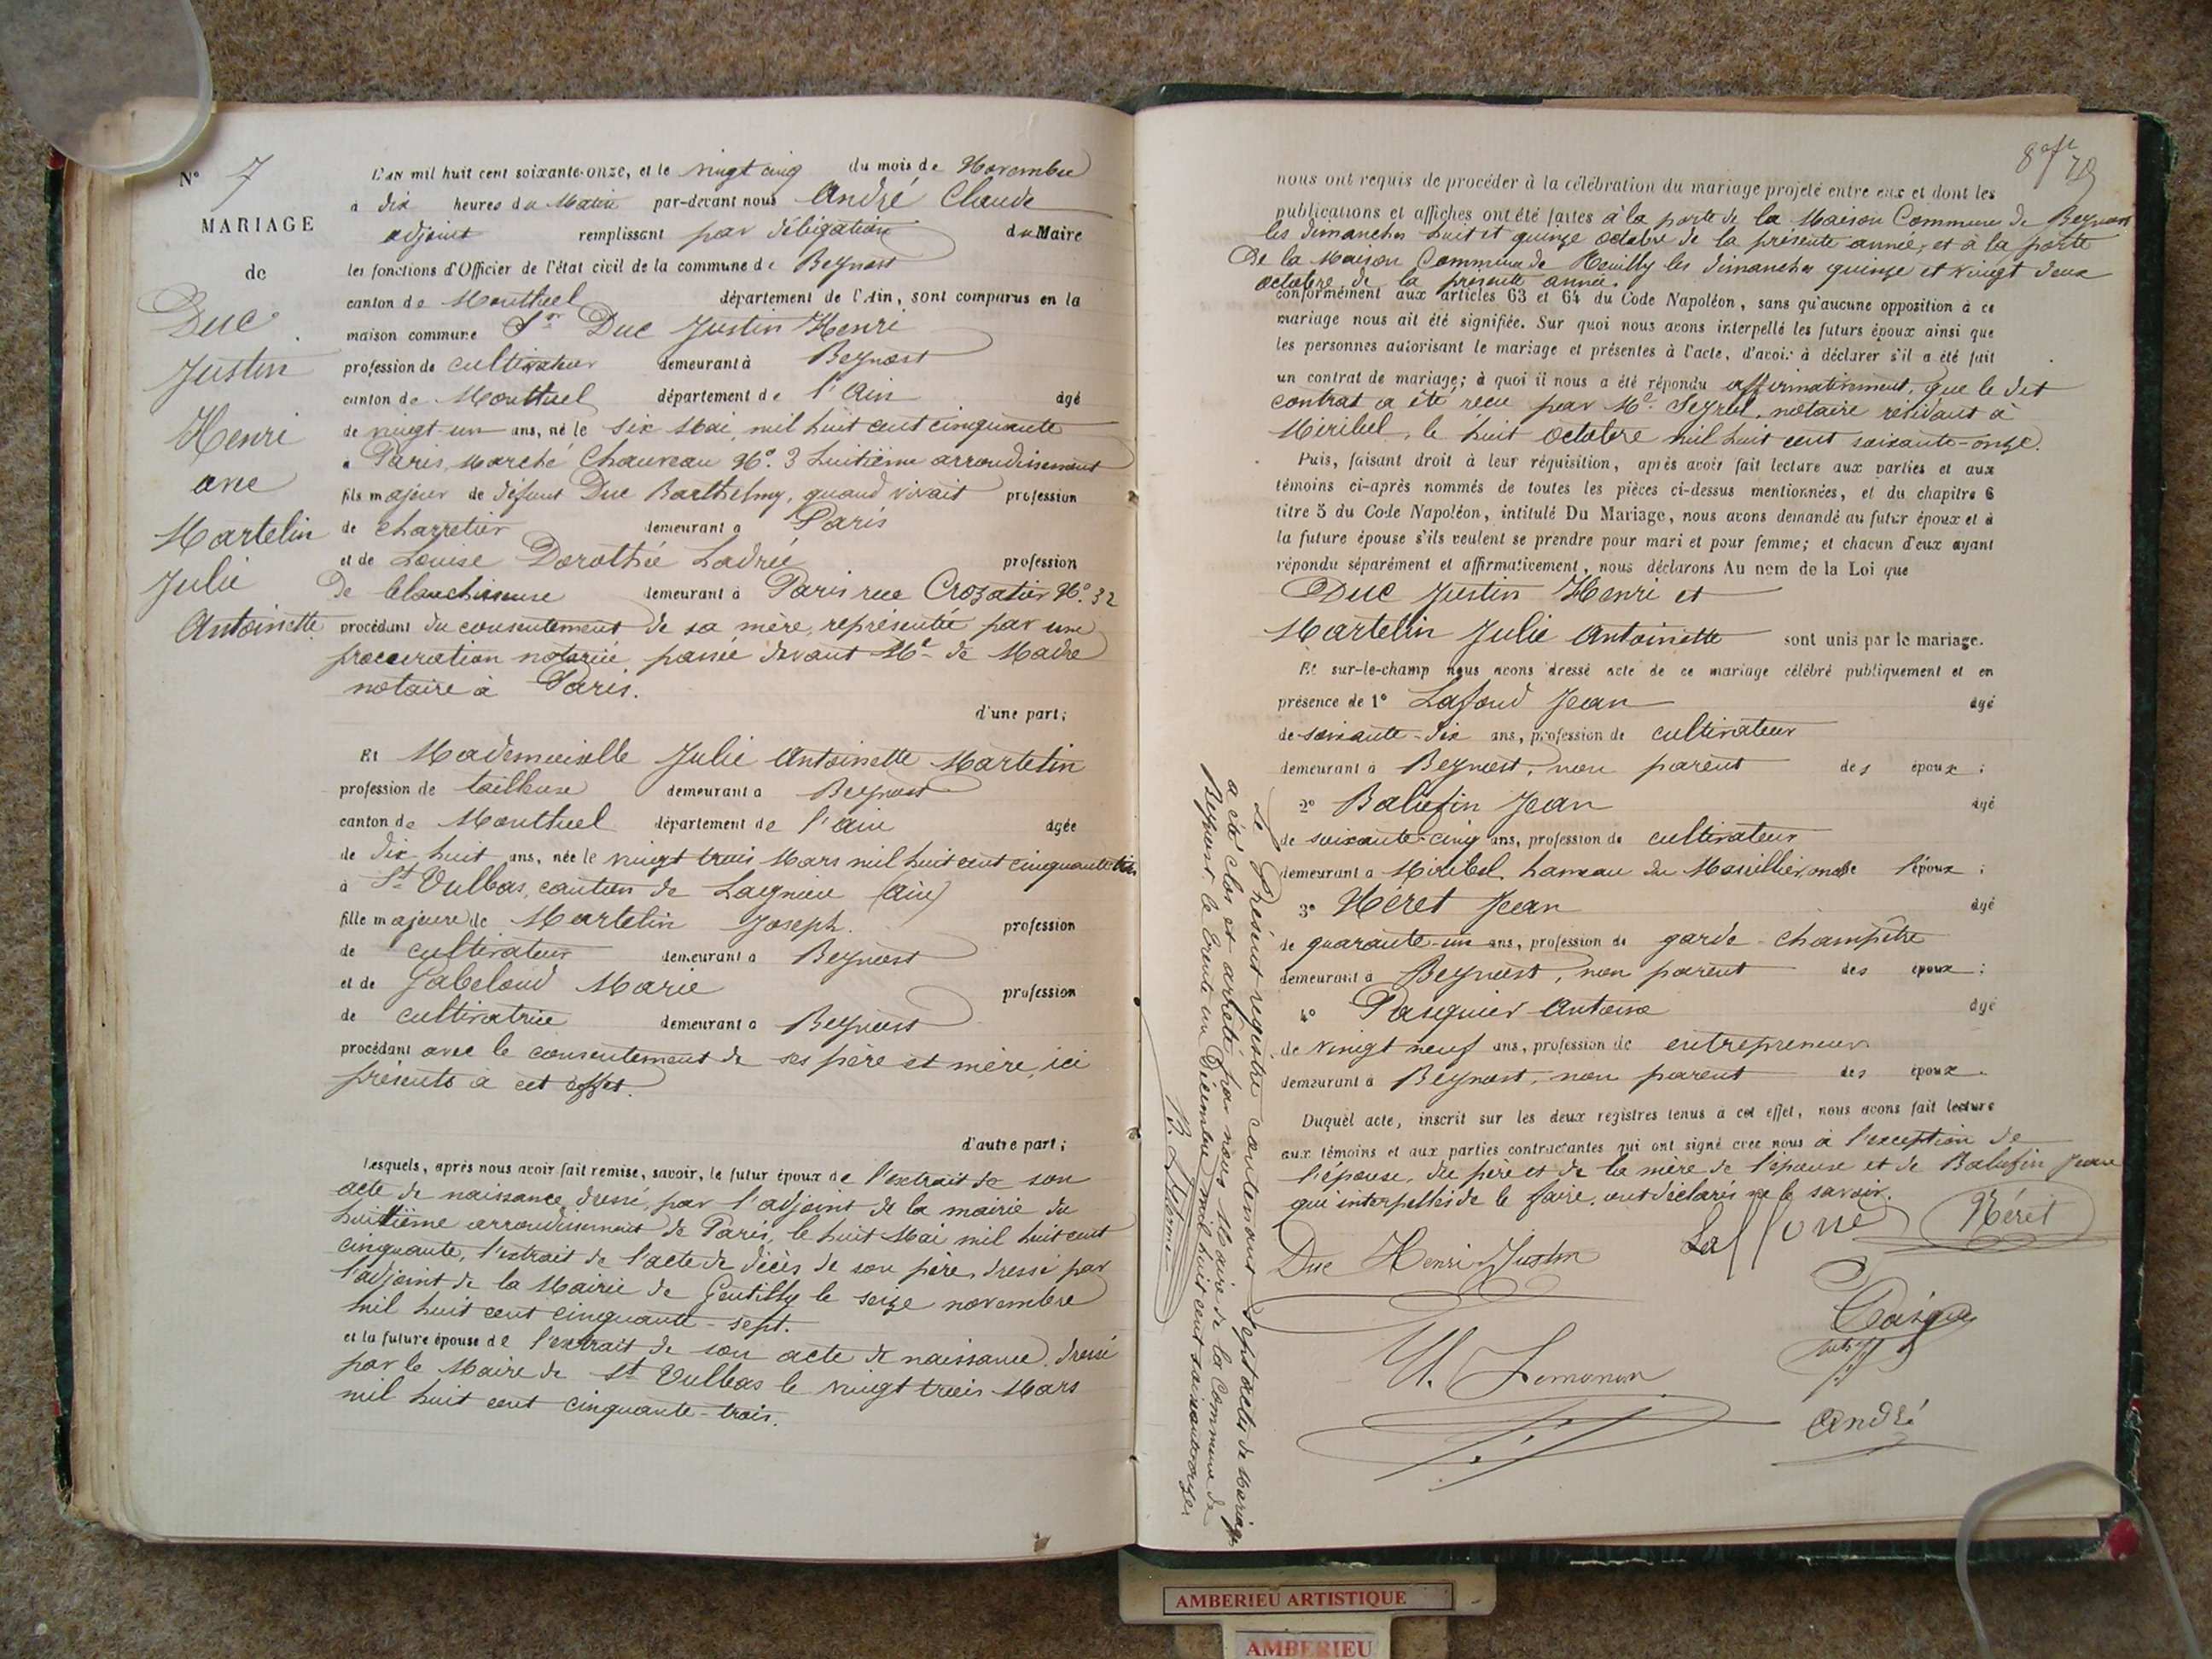 N° 7
MARIAGE
de
Duc
Justin
Henri
avec
Martelin
Julie
Antoinette
L'AN mil huit cent soixante-onze, et le vingt cinq du mois de Novembre
à dix heures du Matin par-devant nous André Claude
adjoint remplissant par délégation du Maire
les fonctions d'Officier de l'état civil de la commune de Beynost
canton de Montluel département de l'Ain, sont comparus en la
maison commune Sr Duc Justin Henri
profession de cultivateur demeurant à Beynost
canton de Montluel département de l'Ain âgé
de vingt-un ans, né le six Mai, mil huit cent cinquante
à Paris, Marché Chauveau N° 3 huitième arrondissement
fils majeur de défunt Duc Barthelmy, quand vivait profession
de charretier demeurant à Paris
et de Louise Dorothée Ladrée profession
De blanchisseuse demeurant à Paris rue Crozatier N° 32
procédant du consentement de sa mère, représentée par une
procuration notariée, passée devant Me de Madre
notaire à Paris.
d'une part;
Et Mademoiselle Julie Antoinette Martelin
profession de tailleuse demeurant à Beynost
canton de Montluel département de l'Ain âgée
de dix huit ans, née le vingt trois Mars mil huit cent cinquante trois
à St Vulbas, canton de Lagnieu (ain)
fille majeure de Martelin Joseph profession
de cultivateur demeurant à Beynost
et de Gabeloud Marie profession
de cultivatrice demeurant à Beynost
procédant avec le consentement de ses père et mère, ici
présents à cet effet.
d'autre part;
Lesquels, après nous avoir fait remise, savoir, le futur époux de l'extrait de son
acte de naissance dressé par l'adjoint de la mairie du
huitième arrondissement de Paris, le huit Mai mil huit cent
cinquante, l'extrait de l'acte de décès de son père, dressé par
l'adjoint de la Mairie de Gentilly le seize novembre
mil huit cent cinquante-sept.
et la future épouse de l'extrait de son acte de naissance, dressé
par le Maire de St Vulbas le vingt trois Mars
mil huit cent cinquante-trois.
nous ont requis de procéder à la célébration du mariage projeté entre eux et dont les
publications et affiches ont été faites à la porte de la Maison Commune de Beynost
les dimanches huit et quinze octobre de la présente année, et à la porte
De la Maison Commune de Neuilly les dimanches quinze et vingt deux
octobre de la présente année.
conformément aux articles 63 et 64 du Code Napoléon, sans qu'aucune opposition à ce
mariage nous ait été signifiée. Sur quoi nous avons interpellé les futurs époux ainsi que
les personnes autorisant le mariage et présentes à l'acte, d'avoir à déclarer s'il a été fait
un contrat de mariage; à quoi il nous a été répondu affirmativement, que le dit
contrat a été reçu par Me Seyrel, notaire résidant à
Miribel, le huit Octobre mil huit cent soixante-onze.
Puis, faisant droit à leur réquisition, après avoir fait lecture aux parties et aux
témoins ci-après nommés de toutes les pièces ci-dessus mentionnées, et du chapitre 6
titre 5 du Code Napoléon, intitulé Du Mariage, nous avons demandé au futur époux et à
la future épouse s'ils veulent se prendre pour mari et pour femme; et chacun d'eux ayant
répondu séparément et affirmativement, nous déclarons Au nom de la Loi que
Duc Justin Henri et
Martelin Julie Antoinette sont unis par le mariage.
Et sur-le-champ nous avons dressé acte de ce mariage célébré publiquement et en
présence de 1° Lafond Jean âgé
de soixante-dix ans, profession de cultivateur
demeurant à Beynost, non parent des époux;
2° Balufin Jean âgé
de soixante-cinq ans, profession de cultivateur
demeurant à Miribel, hameau du Masillier, oncle de l'époux;
3° Néret Jean âgé
de quarante-un ans, profession de garde-champêtre
demeurant à Beynost, non parent des époux;
4° Pasquier Antoine âgé
de vingt neuf ans, profession de entrepreneur
demeurant à Beynost, non parent des époux.
Duquel acte, inscrit sur les deux registres tenus à cet effet, nous avons fait lecture
aux témoins et aux parties contractantes qui ont signé avec nous à l'exception de
l'épouse, du père et de la mère de l'épouse et de Balufin Jean
qui interpellés de le faire, ont déclarés ne le savoir.
Duc Henri Justin
Néret
André
Le Présent registre contenant sept actes de Mariage
a été clos et arrêté par nous Maire de la Commune de
Beynost, le trente un Décembre mil huit cent soixante onze
AMBERIEU ARTISTIQUE
AMBERIEU